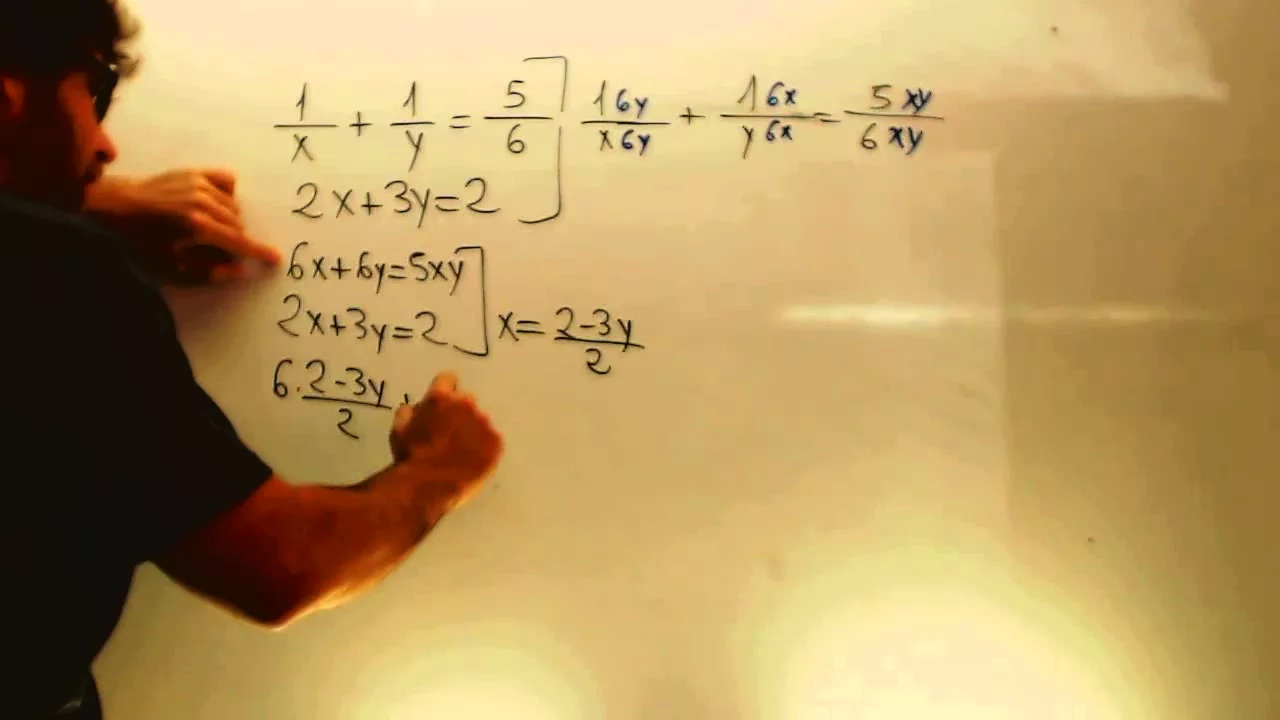 1/x + 1/y = 5/6 ] 1 6y/x 6y + 1 6x/y 6x = 5 xy/6 xy
2x+3y=2
6x+6y=5xy
2x+3y=2 ] x= 2-3y/2
6. 2-3y/2 +